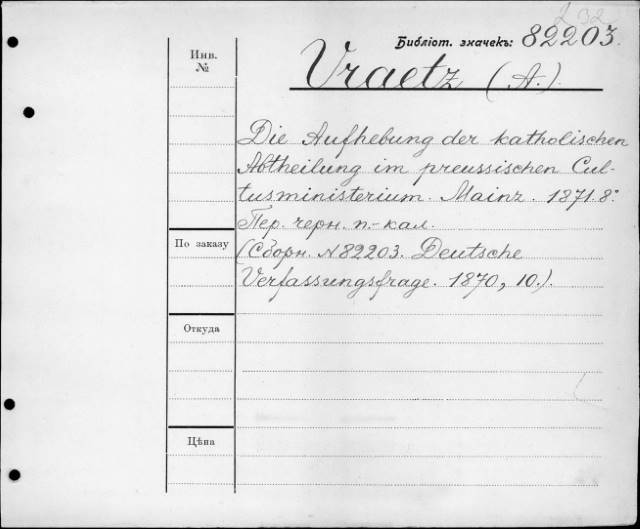 232
Библіот. значекъ: 82203.
Vraetz (A.).
Инв.
№
Die Aufhebung der katholischen
Abtheilung im preussischen Cul-
tusministerium. Mainz. 1871. 8°
Пер. черн. п.-кал.
(Сборн. N 82203. Deutsche
Verfassungsfrage. 1870, 10.).
По заказу
Откуда
Цѣна